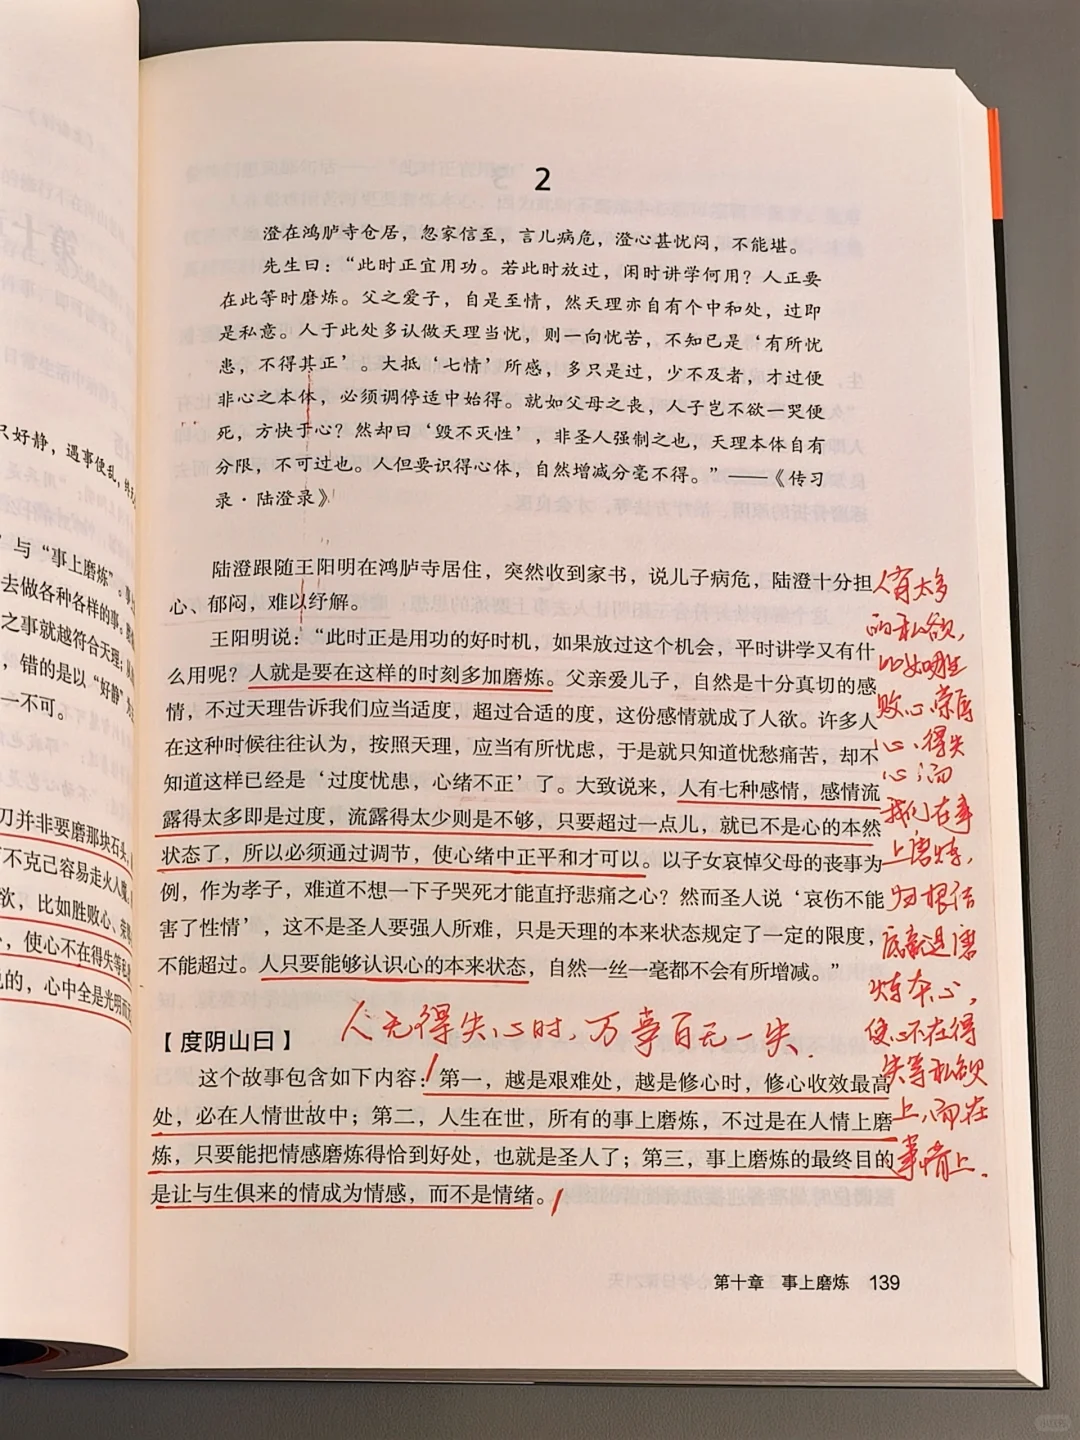 只好静，遇事便乱，终
”与“事上磨炼”。
去做各种各样的事。
之事就越符合天理；
，错的是以“好静”为
一不可。
刀并非要磨那块石头，
不克己容易走火入魔。
欲，比如胜败心、荣辱
，使心不在得失等私
说的，心中全是光明而无
2
澄在鸿胪寺仓居，忽家信至，言儿病危，澄心甚忧闷，不能堪。
先生曰：“此时正宜用功。若此时放过，闲时讲学何用？人正要
在此等时磨炼。父之爱子，自是至情，然天理亦自有个中和处，过即
是私意。人于此处多认做天理当忧，则一向忧苦，不知已是‘有所忧
患，不得其正’。大抵‘七情’所感，多只是过，少不及者，才过便
非心之本体，必须调停适中始得。就如父母之丧，人子岂不欲一哭便
死，方快于心？然却曰‘毁不灭性’，非圣人强制之也，天理本体自有
分限，不可过也。人但要识得心体，自然增减分毫不得。”——《传习
录·陆澄录》
陆澄跟随王阳明在鸿胪寺居住，突然收到家书，说儿子病危，陆澄十分担
心、郁闷，难以纾解。
王阳明说：“此时正是用功的好时机，如果放过这个机会，平时讲学又有什
么用呢？人就是要在这样的时刻多加磨炼。父亲爱儿子，自然是十分真切的感
情，不过天理告诉我们应当适度，超过合适的度，这份感情就成了人欲。许多人
在这种时候往往认为，按照天理，应当有所忧虑，于是就只知道忧愁痛苦，却不
知道这样已经是‘过度忧患，心绪不正’了。大致说来，人有七种感情，感情流
露得太多即是过度，流露得太少则是不够，只要超过一点儿，就已不是心的本然
状态了，所以必须通过调节，使心绪中正平和才可以。以子女哀悼父母的丧事为
例，作为孝子，难道不想一下子哭死才能直抒悲痛之心？然而圣人说‘哀伤不能
害了性情’，这不是圣人要强人所难，只是天理的本来状态规定了一定的限度，
不能超过。人只要能够认识心的本来状态，自然一丝一毫都不会有所增减。”
人有太多
的私欲，
比如胜
败心、荣辱
心、得失
心；而
我们在事
上磨炼，
归根结
底就是磨
炼本心，
使心不在得
失等私欲
上，而在
事情上。
人无得失心时，万事百无一失．
【度阴山曰】
这个故事包含如下内容：第一，越是艰难处，越是修心时，修心收效最高
处，必在人情世故中；第二，人生在世，所有的事上磨炼，不过是在人情上磨
炼，只要能把情感磨炼得恰到好处，也就是圣人了；第三，事上磨炼的最终目的
是让与生俱来的情成为情感，而不是情绪。
第十章 事上磨炼 139
小红书